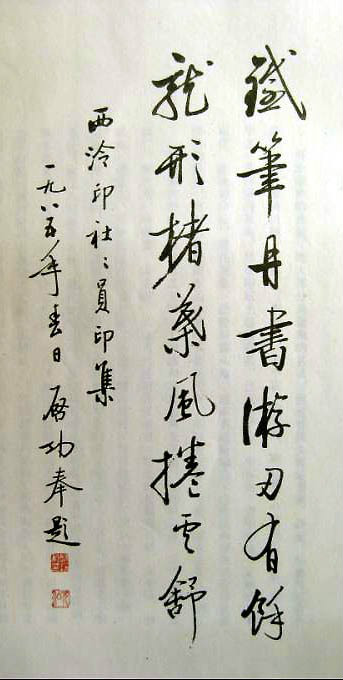 鐵筆丹書游刃有餘
龍形楮葉風捲雲舒
西泠印社〻員印集
一九八五年春日 啓功奉題